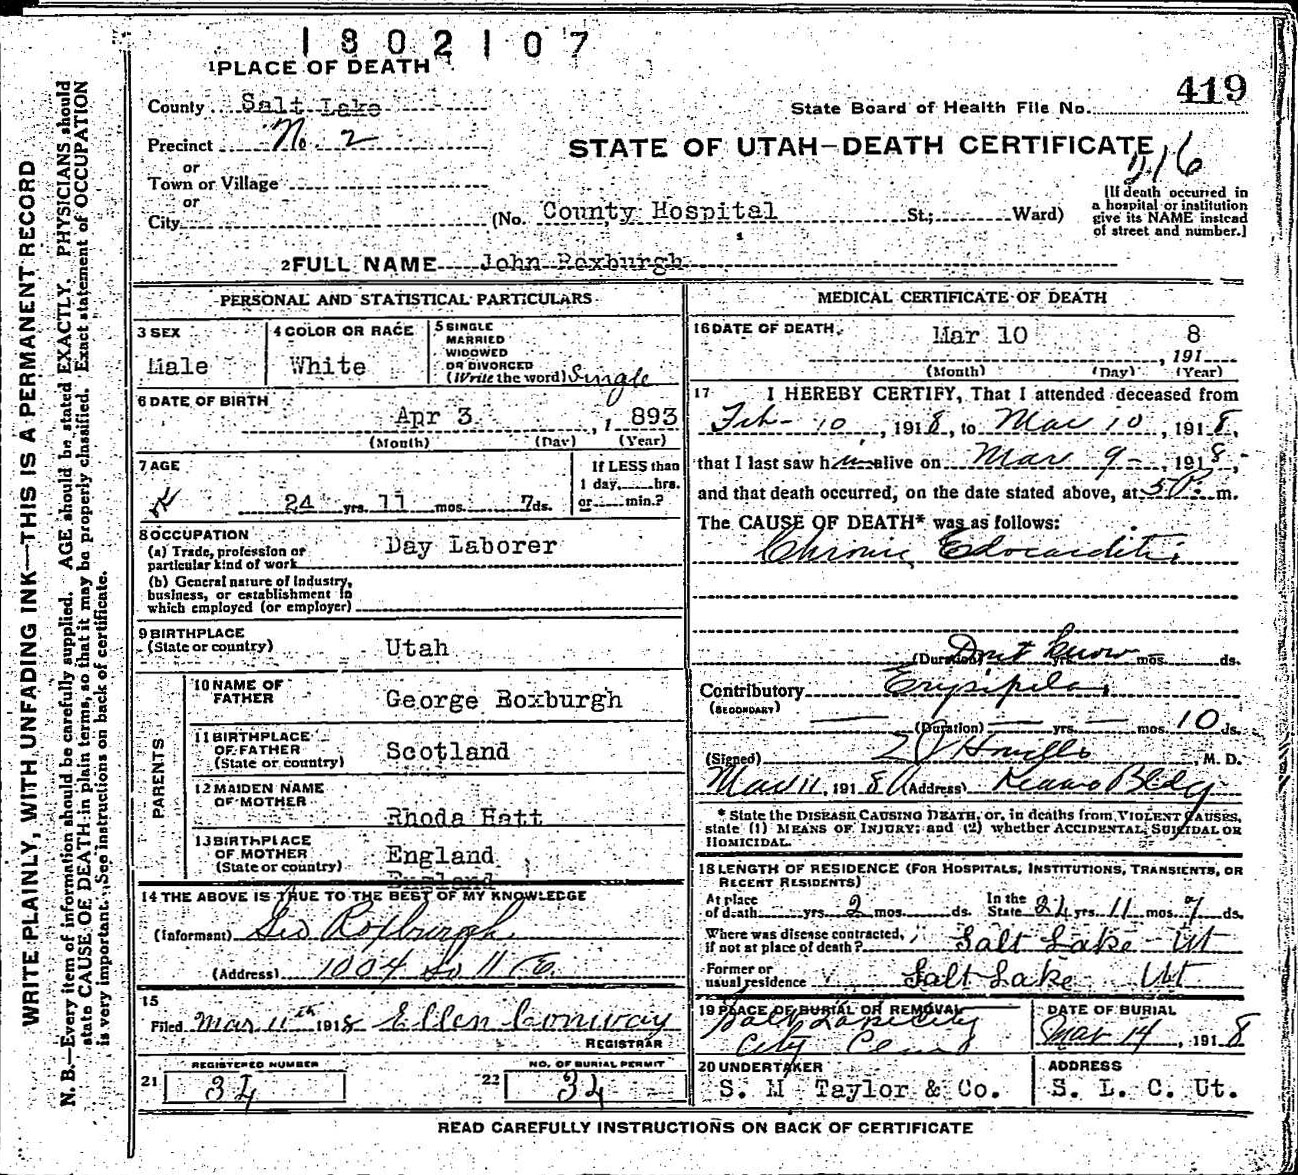 1802107
1 PLACE OF DEATH
419
County Salt Lake
State Board of Health File No.
Precinct No. 2
STATE OF UTAH—DEATH CERTIFICATE
or
Town or Village
or
City (No. County Hospital St.; Ward)
[If death occurred in
a hospital or institution
give its NAME instead
of street and number.]
2 FULL NAME John Roxburgh
PERSONAL AND STATISTICAL PARTICULARS
3 SEX
Male
4 COLOR OR RACE
White
5 SINGLE
MARRIED
WIDOWED
OR DIVORCED
(Write the word) Single
6 DATE OF BIRTH
Apr 3 , 1 893
(Month) (Day) (Year)
7 AGE
24 yrs. 11 mos. 7 ds.
If LESS than
1 day, hrs.
or min.?
8 OCCUPATION
(a) Trade, profession or
particular kind of work Day Laborer
(b) General nature of industry,
business, or establishment in
which employed (or employer)
9 BIRTHPLACE
(State or country) Utah
PARENTS
10 NAME OF
FATHER George Roxburgh
11 BIRTHPLACE
OF FATHER
(State or country) Scotland
12 MAIDEN NAME
OF MOTHER
Rhoda Hatt
13 BIRTHPLACE
OF MOTHER
(State or country) England
England
14 THE ABOVE IS TRUE TO THE BEST OF MY KNOWLEDGE
(Informant) Geo Roxburgh
(Address) 1004 So 11 E.
15
Filed Mar 11th 1918 Ellen Conway
REGISTRAR
REGISTERED NUMBER
21 34
NO. OF BURIAL PERMIT
22 34
MEDICAL CERTIFICATE OF DEATH
16 DATE OF DEATH
Mar 10 , 191 8
(Month) (Day) (Year)
17 I HEREBY CERTIFY, That I attended deceased from
Feb - 10 , 191 8, to Mar 10 , 191 8,
that I last saw him alive on Mar 9 - , 191 8,
and that death occurred, on the date stated above, at 5 P. m.
The CAUSE OF DEATH* was as follows:
Chronic Edocarditis
(Duration) Don't know yrs. mos. ds.
Contributory Erysipelas
(SECONDARY)
(Duration) yrs. mos. 10 ds.
(Signed) , M. D.
Mar 11, 191 8 (Address) Bldg
* State the DISEASE CAUSING DEATH, or, in deaths from VIOLENT CAUSES,
state (1) MEANS OF INJURY; and (2) whether ACCIDENTAL, SUICIDAL OR
HOMICIDAL.
18 LENGTH OF RESIDENCE (FOR HOSPITALS, INSTITUTIONS, TRANSIENTS, OR
RECENT RESIDENTS)
At place
of death yrs. 2 mos. ds.
In the
State 24 yrs. 11 mos. 7 ds.
Where was disease contracted,
if not at place of death? Salt Lake - Ut
Former or
usual residence Salt Lake Ut
19 PLACE OF BURIAL OR REMOVAL
Salt Lake City
City Cem
DATE OF BURIAL
Mar 14 , 191 8
20 UNDERTAKER
S. M Taylor & Co.
ADDRESS
S. L. C. Ut.
READ CAREFULLY INSTRUCTIONS ON BACK OF CERTIFICATE
WRITE PLAINLY, WITH UNFADING INK—THIS IS A PERMANENT RECORD
N. B.—Every item of information should be carefully supplied. AGE should be stated EXACTLY. PHYSICIANS should
state CAUSE OF DEATH in plain terms, so that it may be properly classified. Exact statement of OCCUPATION
is very important. See instructions on back of certificate.